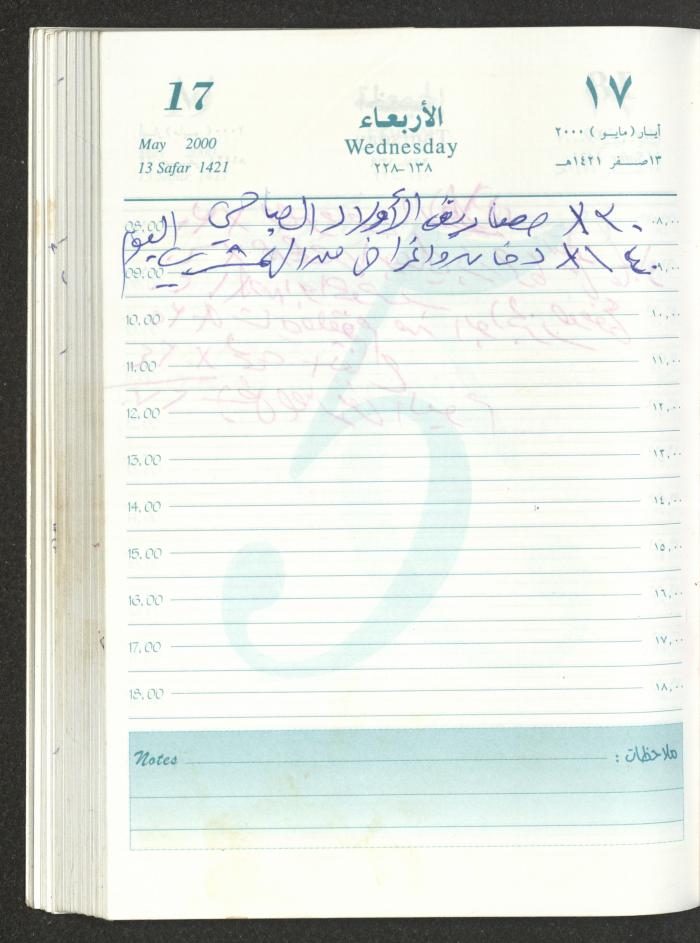 17
May 2000
13 Safar 1421
الأربعاء
Wednesday
٢٢٨-١٣٨
١٧
أيـار ( مايـو ) ٢٠٠٠
١٣ صـفـر ١٤٢١هـ
٣٠ X مصاريف الأولاد الصباحي اليوم
٤٠ X١ دخان واغراض من
08.00 ٠٨,٠٠
09.00 ٠٩,٠٠
10.00 ١٠,٠٠
11.00 ١١,٠٠
12.00 ١٢,٠٠
13.00 ١٣,٠٠
14.00 ١٤,٠٠
15.00 ١٥,٠٠
16.00 ١٦,٠٠
17.00 ١٧,٠٠
18.00 ١٨,٠٠
Notes ملاحظات :